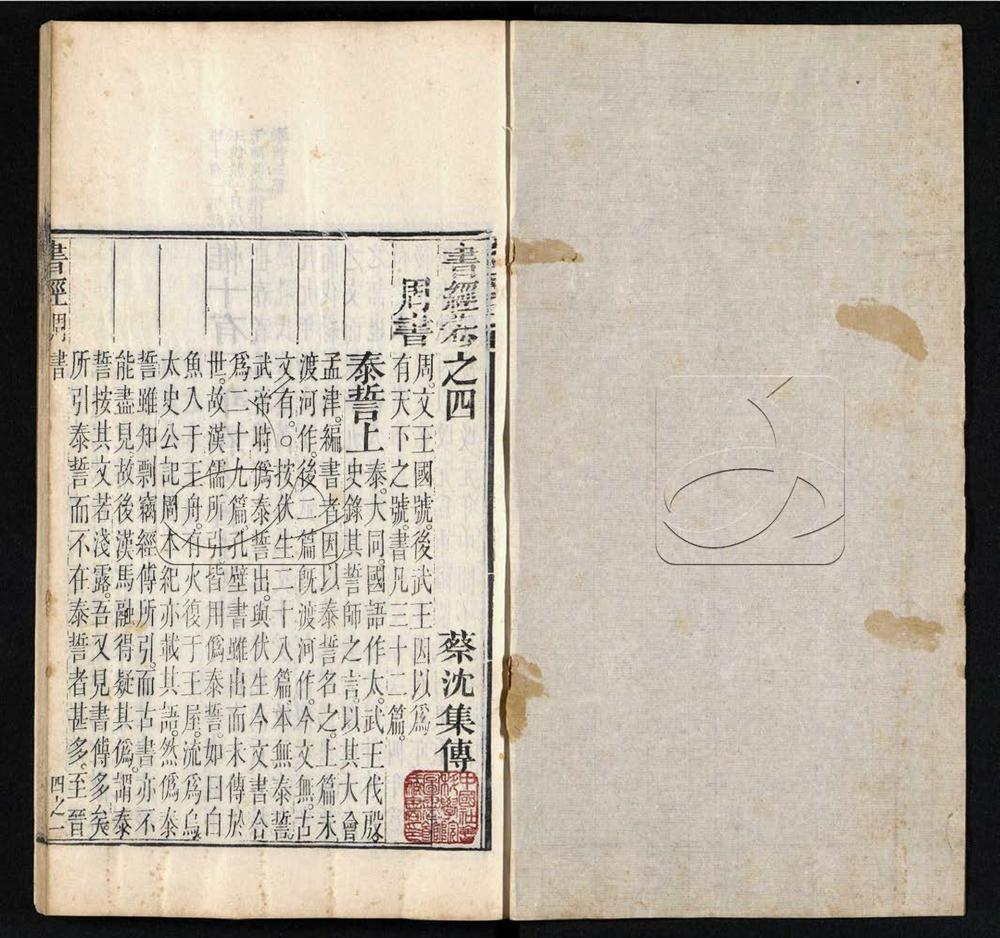 書經卷之四　蔡沈集傳
周書
周。文王國號。後武王因以爲
有天下之號。書凡三十二篇。
泰誓上
泰。大同。國語作太。武王伐殷。
史錄其誓師之言。以其大會
孟津。編書者因以泰誓名之。上篇未
渡河作。後二篇旣渡河作。今文無。古
文有。○按伏生二十八篇。本無泰誓。
武帝時僞泰誓出。與伏生今文書合
爲二十九篇。孔壁書雖出而未傳於
世。故漢儒所引。皆用僞泰誓。如曰白
魚入于王舟。有火復于王屋。流爲烏。
太史公記周本紀亦載其語。然僞泰
誓雖知剽竊經傳所引。而古書亦不
能盡見。故後漢馬融得疑其僞。謂泰
誓按其文若淺露。吾又見書傳多矣。
所引泰誓而不在泰誓者甚多。至晉
書經 周書　四之一
中國社會
科學院
圖書館